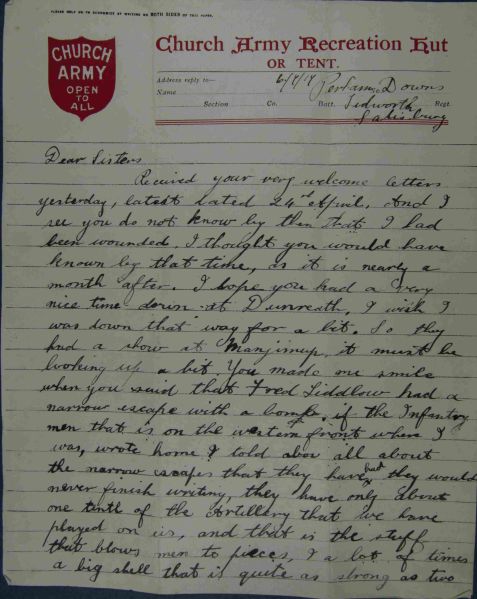 PLEASE HELP US TO ECONOMIZE BY WRITING ON BOTH SIDES OF THIS PAPER.
CHURCH
ARMY
OPEN
TO
ALL
Church Army Recreation Hut
OR TENT.
Address reply to— 6/7/17 Perham Downs
Name Tidworth
Section Co. Batt. Regt
Salisbury
Dear Sisters
Recieved your very welcome letters
yesterday, latest dated 24th April. And I
see you do not know by then that I had
been wounded. I thought you would have
known by that time, as it is nearly a
month after. I hope you had a very
nice time down at Dunreath, I wish I
was down that way for a bit. So they
had a show at Manjimup, it must be
looking up a bit. You made me smile
when you said that Fred Liddlow had a
narrow escape with a bomb, if the Infantry
men that is on the western front where I
was, wrote home & told all about
the narrow escapes that they have had they would
never finish writing, they have only about
one tenth of the Artillery that we have
played on us, and that is the stuff
that blows men to pieces, & a lot of times
a big shell that is quite as strong as two